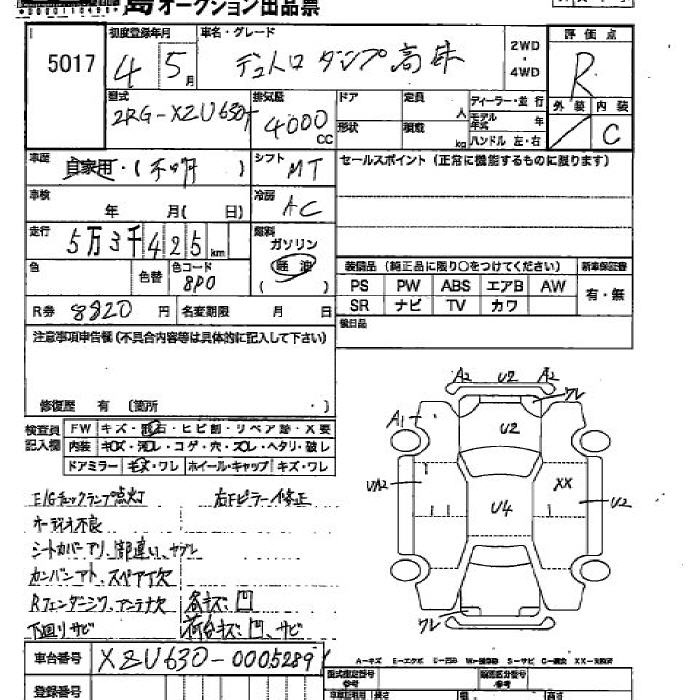 オークション出品票
5017
初度登録年月
4 5月
車名・グレード
デュトロ ダンプ高床
2WD
・
4WD
評価点
R
外装 内装
C
型式
2RG-XZU630T
排気量
4000 CC
ドア
定員 人
形状
積載 kg
ディーラー・並行
モデル年式 年
ハンドル 左・右
車歴
自家用・( )
シフト
MT
セールスポイント (正常に機能するものに限ります)
車検
年 月( 日)
冷房
AC
走行
5万3千425km
燃料
ガソリン
軽油
( )
色
色替
色コード
8P0
装備品 (純正品に限り○をつけてください)
新車保証書
PS PW ABS エアB AW
SR ナビ TV カワ
有・無
R券 8820円
名変期限 月 日
後日品
注意事項申告欄(不具合内容等は具体的に記入して下さい)
修復歴 有 (箇所 ・ )
検査員記入欄
FW キズ・飛石・ヒビ割・リペア跡・X要
内装 キズ・汚レ・コゲ・穴・スレ・ヘタリ・破レ
ドアミラー キズ・ワレ ホイール・キャップ キズ・ワレ
E/Gチェックランプ点灯 右Fピラー修正
オーディオ不良
シートカバーアリ、部違い、ヤブレ
カンバンアト、スペア欠
Rフェンダーミラ、アンテナ欠 各キズ凹
下回リサビ 荷台キズ凹、サビ
A2 U2 A2
ワレ
A1
U2
XX
U/A2
U4
U2
ワレ
車台番号 XZU630-0005289
登録番号
A-キズ E-エクボ U-凹み W-補修跡 S-サビ C-腐食 XX-交換済
型式指定番号
参考
類別区分番号
参考
長さ
幅
高さ